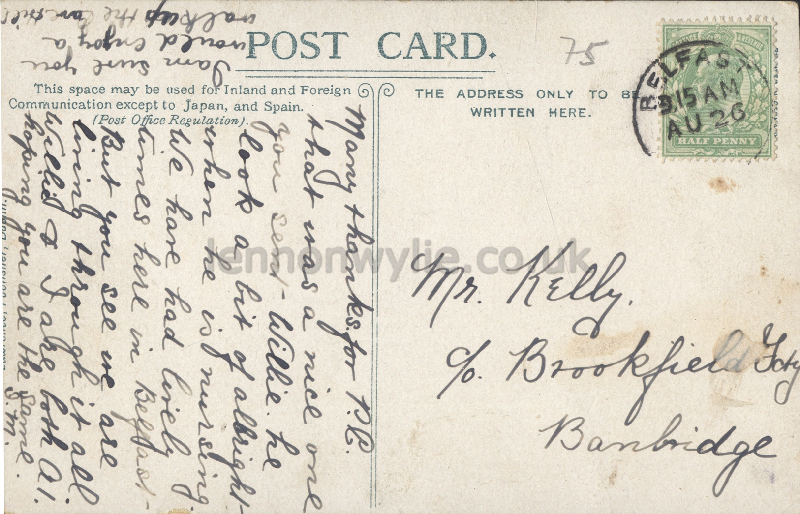 POST CARD.
75
This space may be used for Inland and Foreign
Communication except to Japan, and Spain.
(Post Office Regulation).
THE ADDRESS ONLY TO BE
WRITTEN HERE.
BELFAST
3.15 AM
AU 26
HALF PENNY
Many thanks for P.C.
that was a nice one
you sent - Willie. he
look a bit of albright
when he is nursing.
We have had lively
times here in Belfast -
But you see we are
living through it all
Willie & I are both A1.
hoping you are the same.
S.M.
I am sure you
would enjoy a
walk up the
Mr. Kelly.
c/o Brookfield Fcty
Banbridge
lennonwylie.co.uk